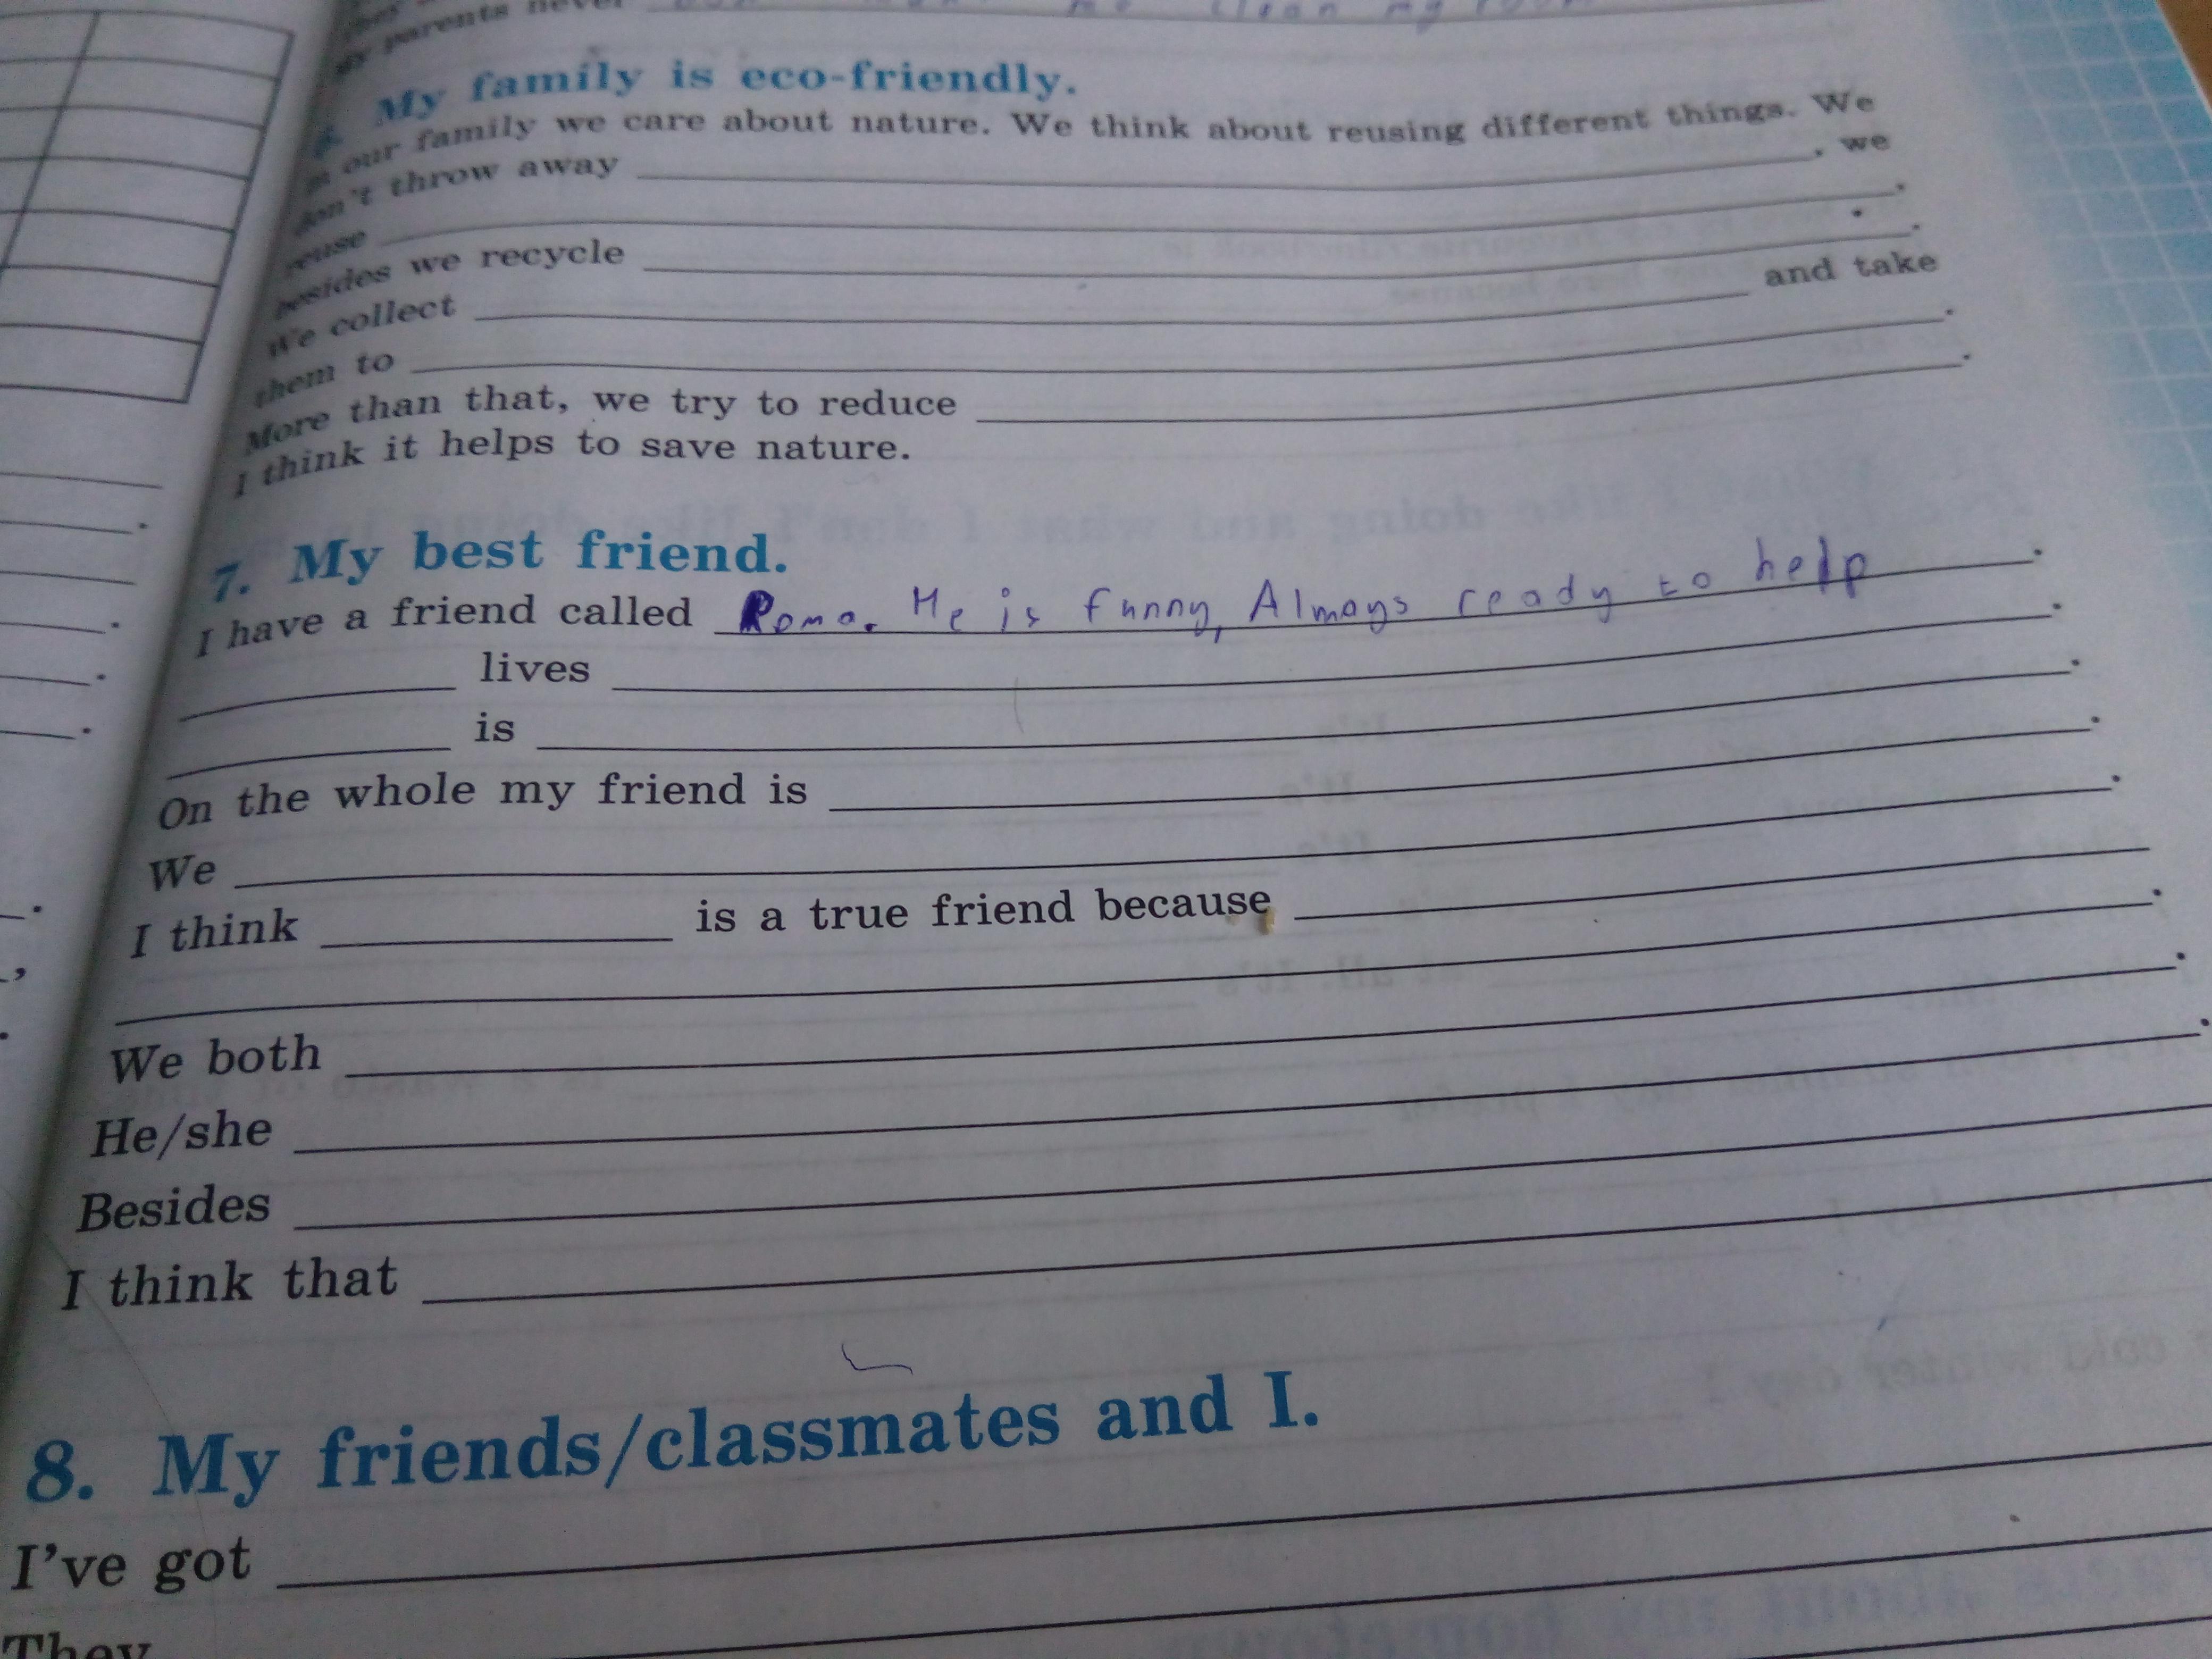 My parents never me clean my room
6. My family is eco-friendly.
In our family we care about nature. We think about reusing different things. We
don't throw away , we
reuse .
Besides we recycle .
We collect and take
them to .
More than that, we try to reduce .
I think it helps to save nature.
7. My best friend.
I have a friend called Roma. He is funny, Always ready to help .
lives .
is .
On the whole my friend is .
We .
I think is a true friend because
.
We both .
He/she .
Besides
I think that
8. My friends/classmates and I.
I've got
They